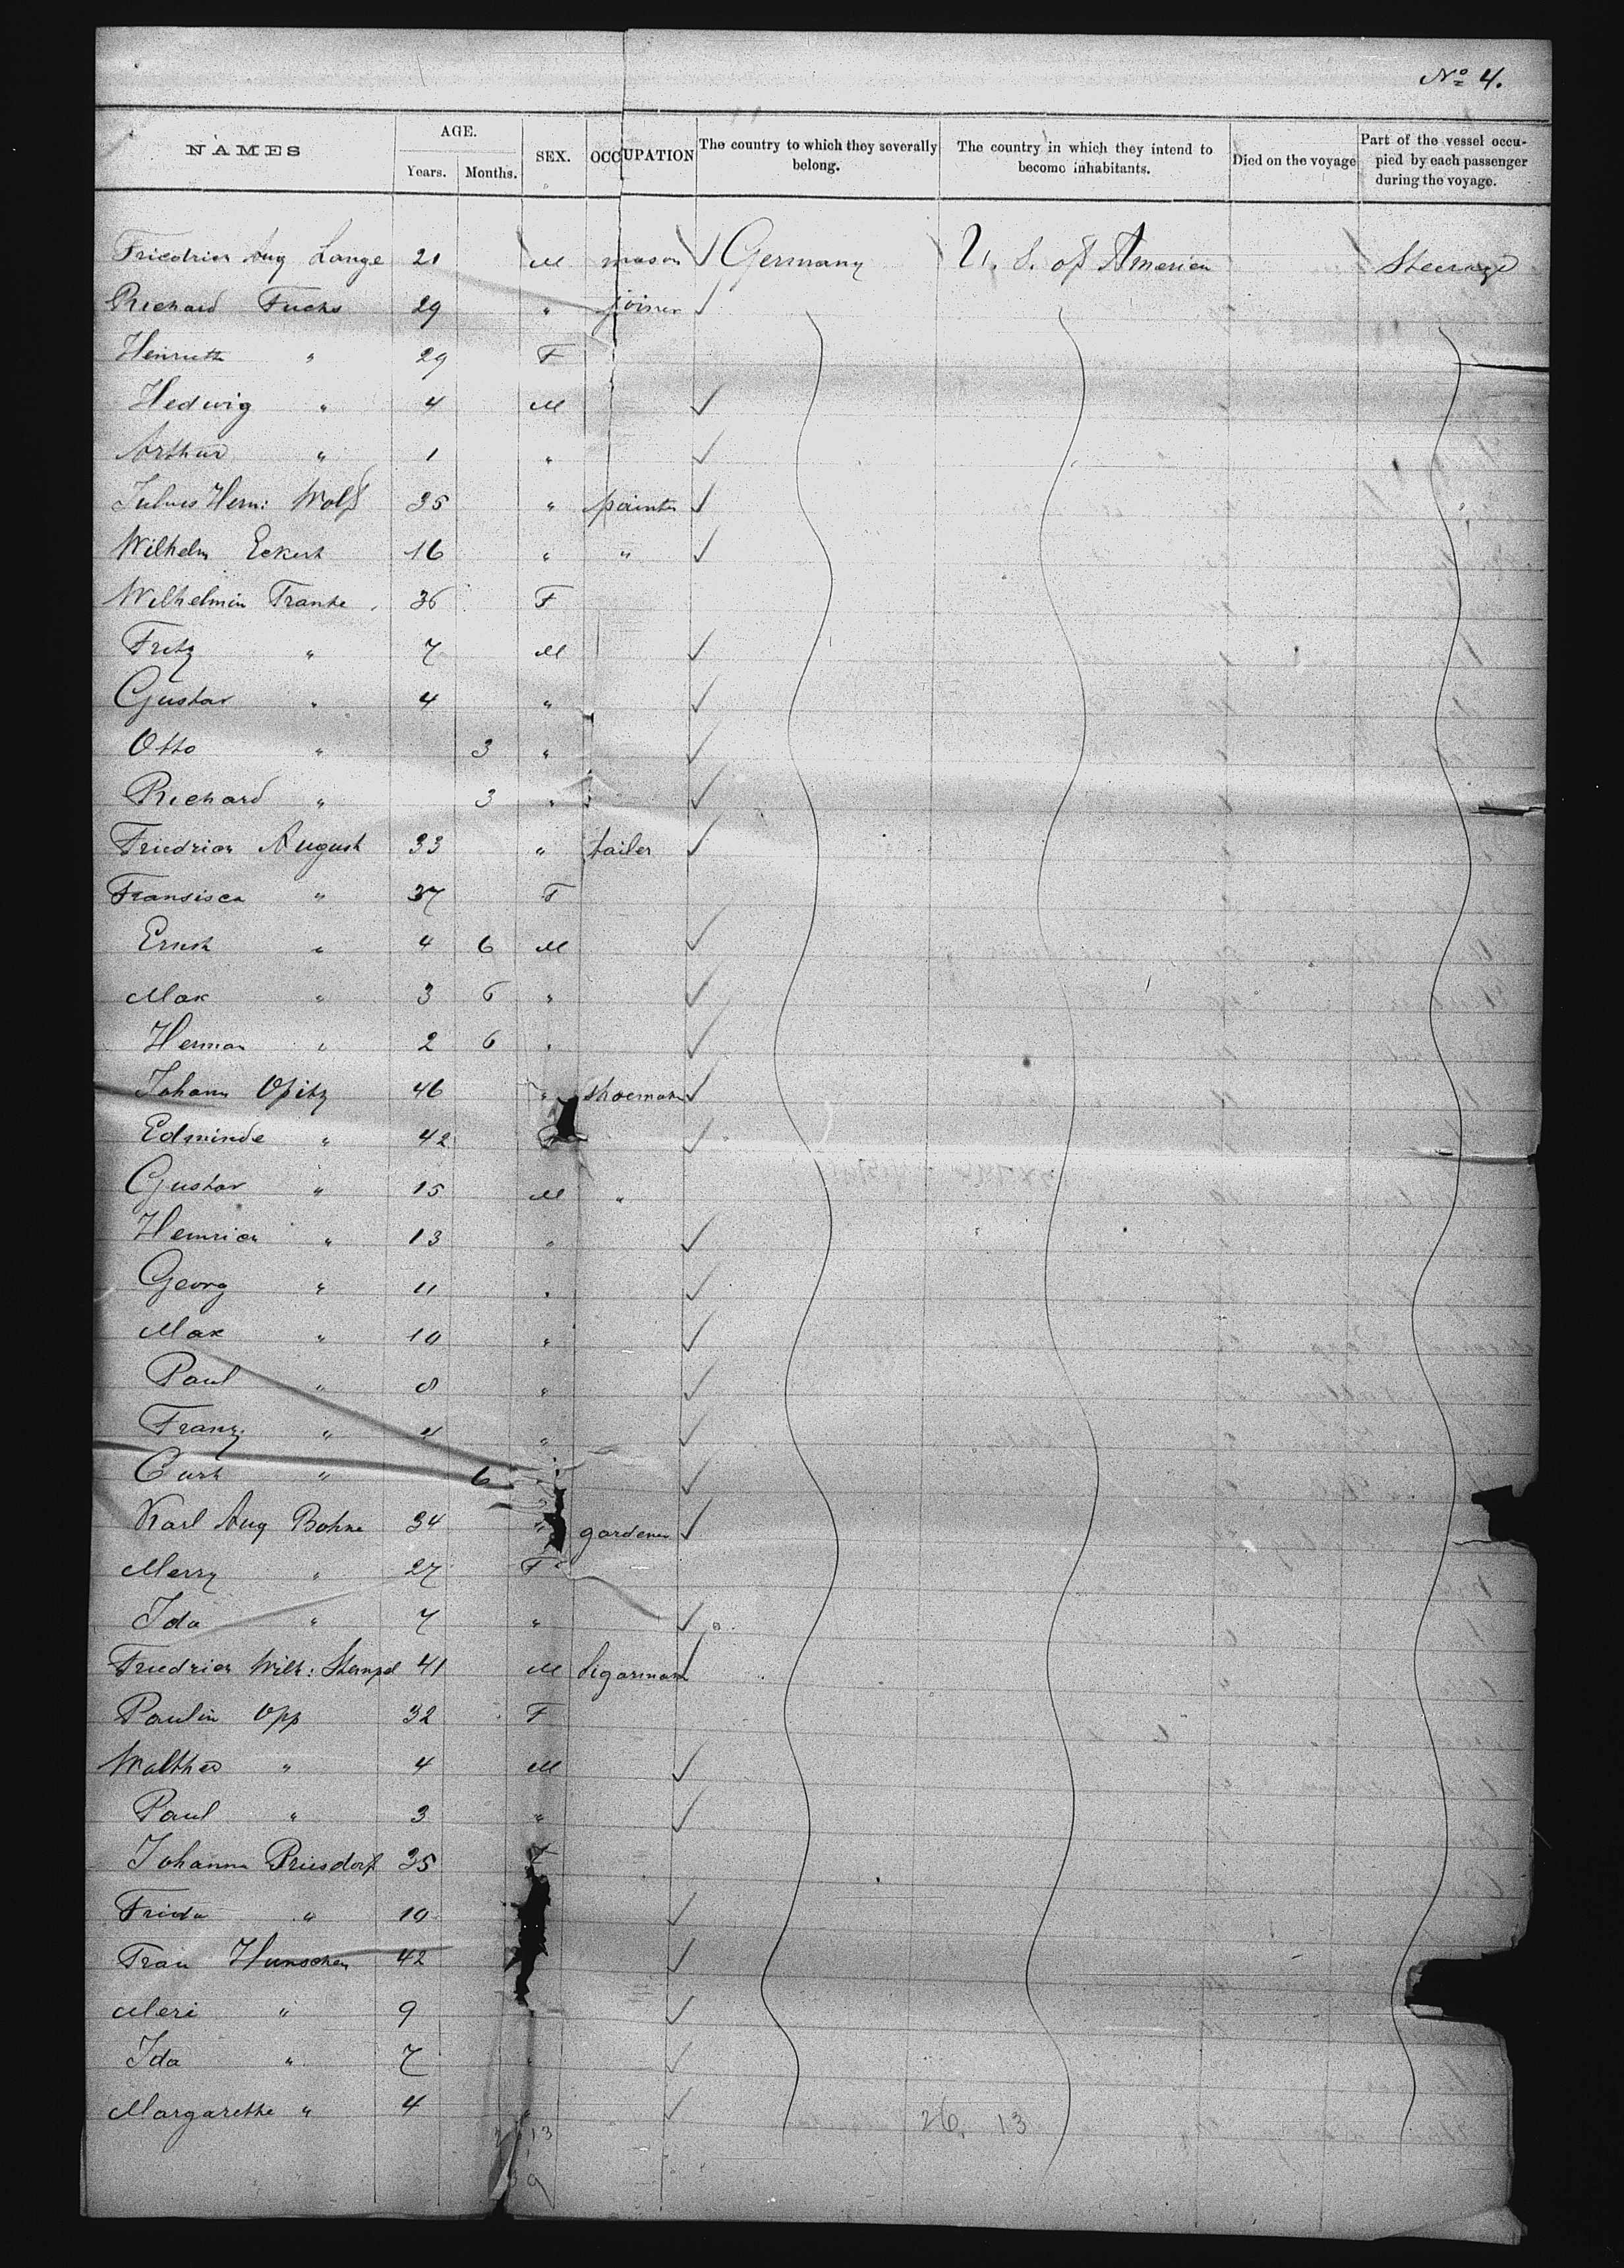 No 4.
NAMES AGE. Years. Months. SEX. OCCUPATION The country to which they severally belong. The country in which they intend to become inhabitants. Died on the voyage Part of the vessel occupied by each passenger during the voyage.
Friedrich Aug Lange 21 M mason ✓ Germany U. S. of America Steerage
Richard Fuchs 29 " joiner ✓
Henrieth " 29 F
Hedwig " 4 M ✓
Arthur " 1 " ✓
Julius Herm: Wolf 35 " painter ✓
Wilhelm Eckert 16 " " ✓
Wilhelmin Franke 36 F
Fritz " 7 M ✓
Gustav " 4 " ✓
Otto " 3 " ✓
Richard " 3 " ✓
Friedrich August 33 " tailer ✓
Fransisca " 37 F
Ernst " 4 6 M ✓
Max " 3 6 " ✓
Herman " 2 6 " ✓
Johann Opitz 46 " shoemak ✓
Edminde " 42 ✓
Gustav " 15 M "
Heinrich " 13 " ✓
Georg " 11 " ✓
Max " 10 " ✓
Paul " 8 " ✓
Franz " 4 " ✓
Curt " 6 ✓
Karl Aug Bohne 34 " gardener ✓
Merry " 27 F
Ida " 7 " ✓
Friedrich Wilh: Stempel 41 M Sigarmak ✓
Paulin Opp 32 F
Walther " 4 M ✓
Paul " 3 " ✓
Johanna Priesdorf 35 F
Frida " 10 ✓
Frau Hunschen 42 ✓
Meri " 9 ✓
Ida " 7 " ✓
Margarethe " 4 " ✓
26. 13
13
9